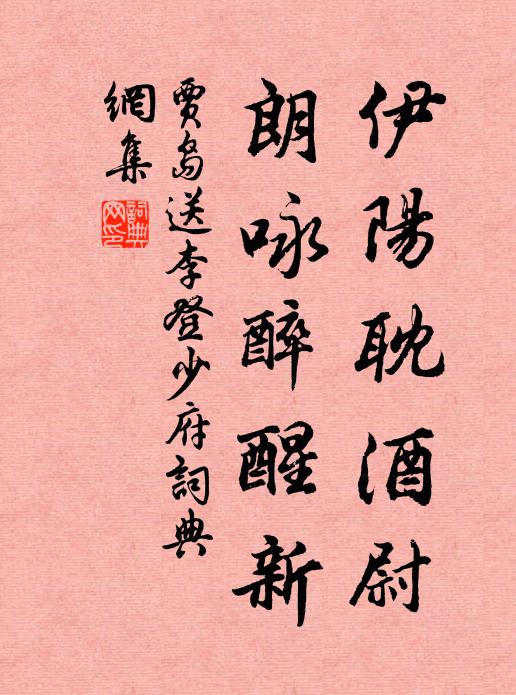 伊陽耽酒尉
朗咏醉醒新
賈島送李登少府詞典
網集
詞典
網印